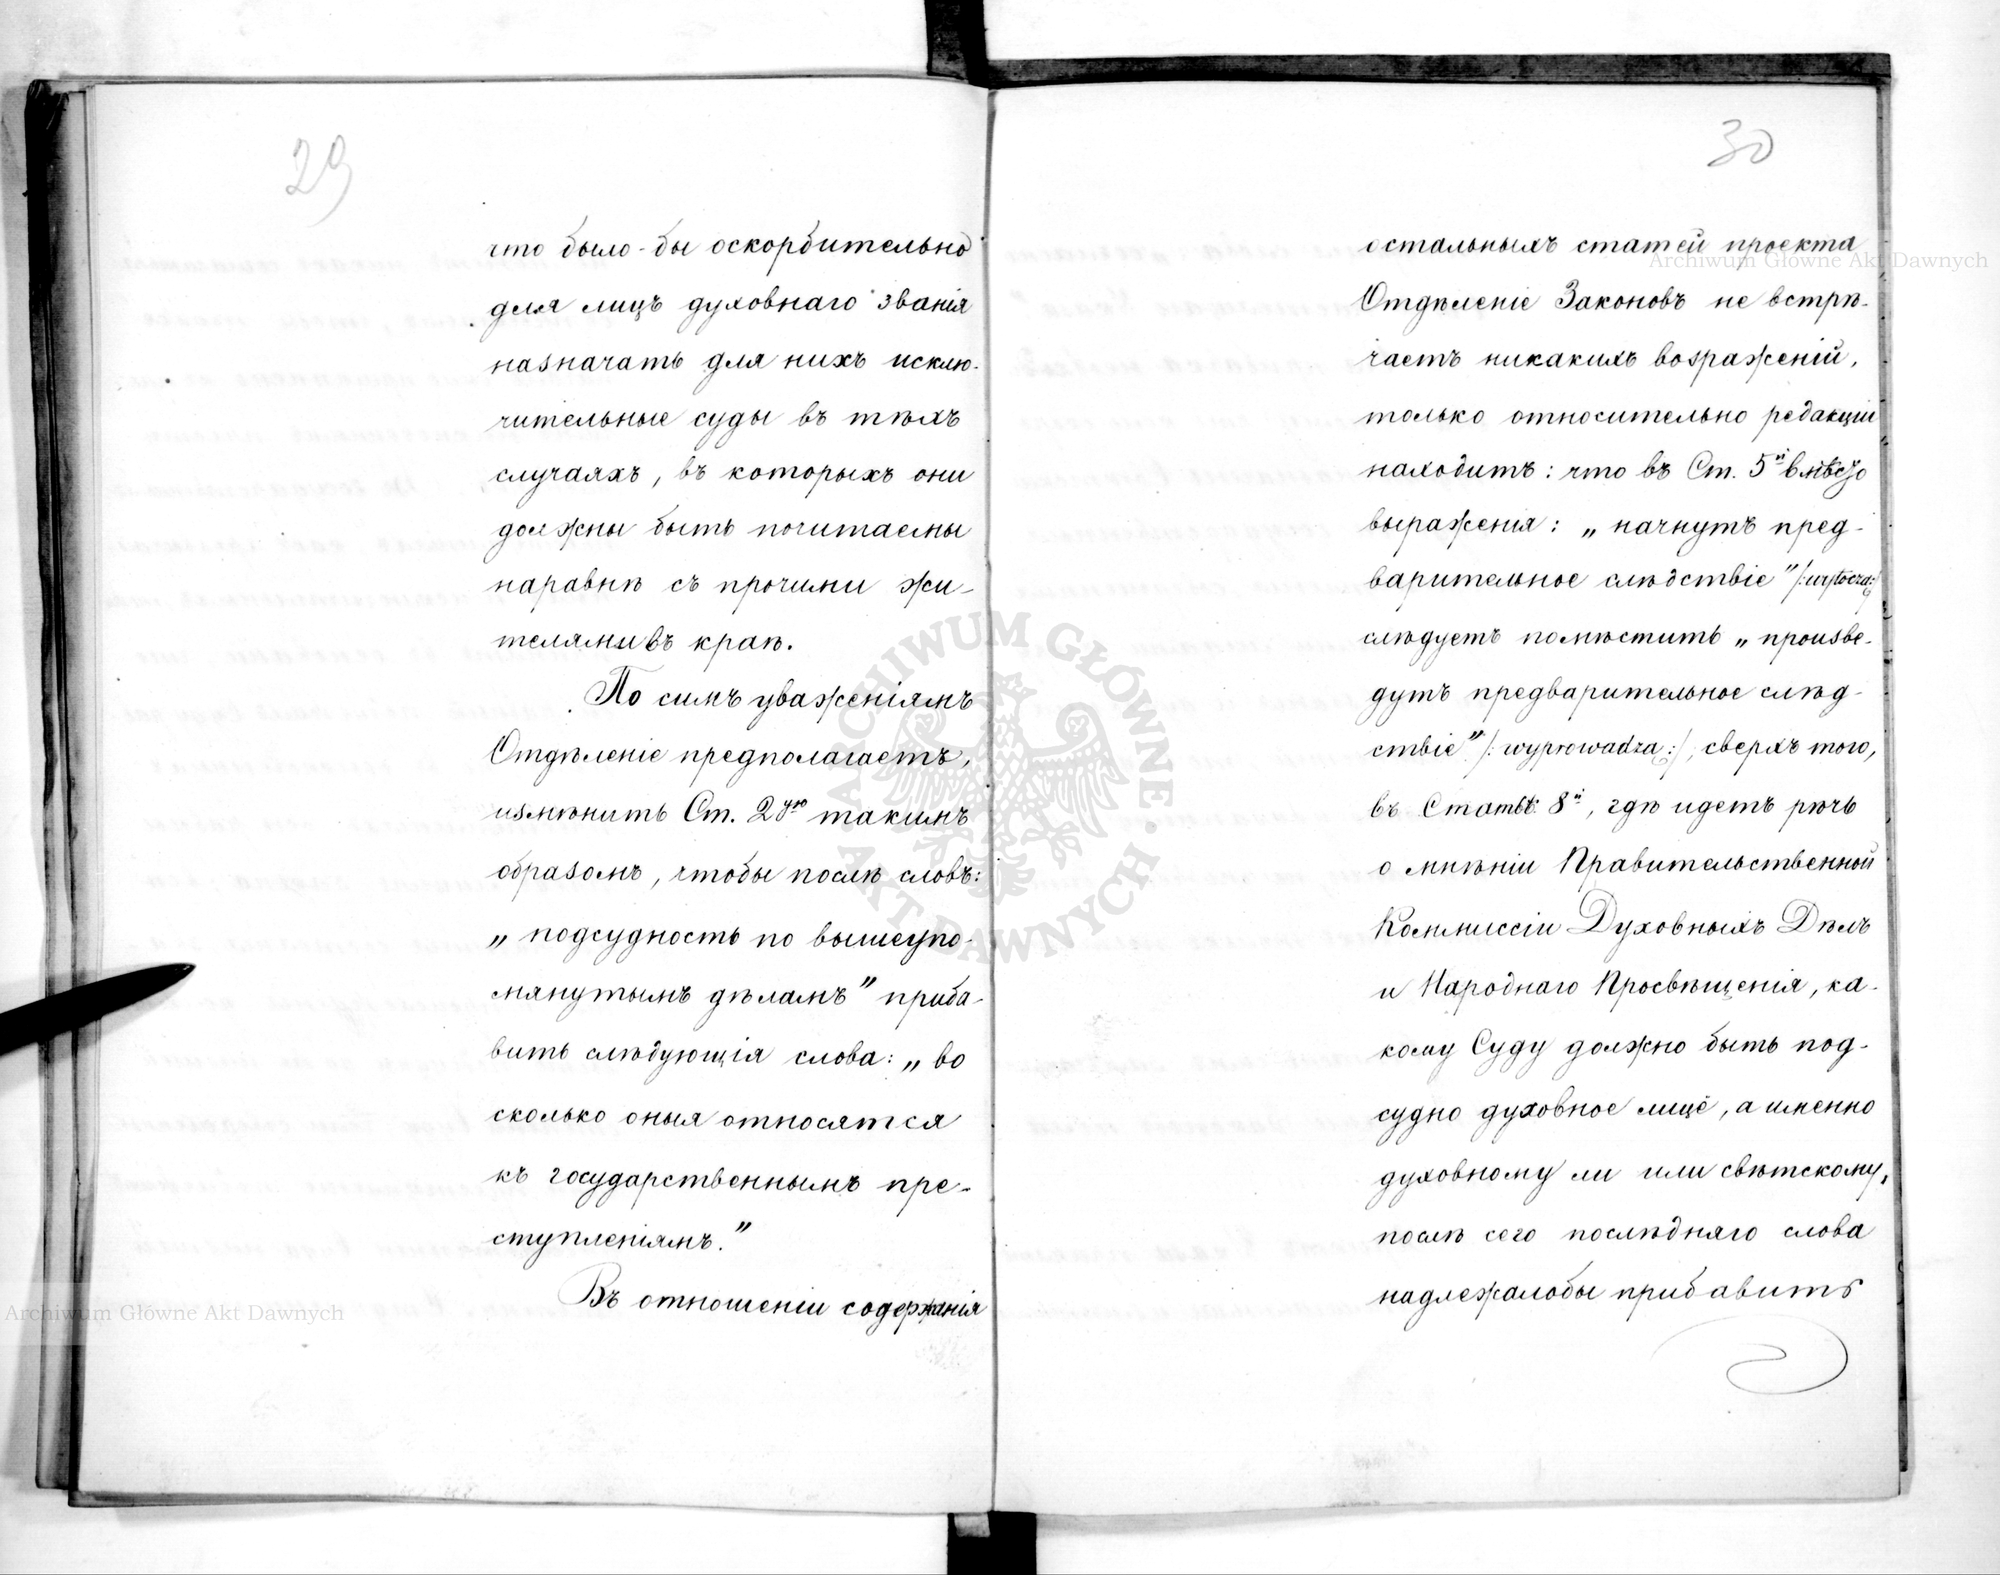 29
что было-бы оскорбительно
для лицъ духовнаго званія
назначать для нихъ исклю-
чительные суды въ тѣхъ
случаяхъ, въ которыхъ они
должны быть почитаемы
наравнѣ съ прочими жи-
телями въ краѣ.
По симъ уваженіямъ
Отдѣленіе предполагаетъ,
измѣнить Ст. 2ую такимъ
образомъ, чтобы послѣ словъ:
„подсудность по вышеупо-
мянутымъ дѣламъ" приба-
вить слѣдующія слова: „во
сколько оныя относятся
къ государственнымъ пре-
ступленіямъ."
Въ отношеніи содержанія
30
остальныхъ статей проекта
Отдѣленіе Законовъ не встрѣ-
чаетъ никакихъ возраженій,
только относительно редакціи
находитъ: что въ Ст. 5й вмѣсто
выраженія: „начнутъ пред-
варительное слѣдствіе" /:wytoczą:/
слѣдуетъ помѣстить „произве-
дутъ предварительное слѣд-
ствіе" /:wyprowadzą:/, сверхъ того,
въ Статьѣ 8й, гдѣ идетъ рѣчь
о мнѣніи Правительственной
Коммиссіи Духовныхъ Дѣлъ
и Народнаго Просвѣщенія, ка-
кому Суду должно быть под-
судно духовное лицё, а именно
духовному ли или свѣтскому,
послѣ сего послѣдняго слова
надлежалобы прибавить
ARCHIWUM GŁÓWNE AKT DAWNYCH
Archiwum Główne Akt Dawnych
Archiwum Główne Akt Dawnych